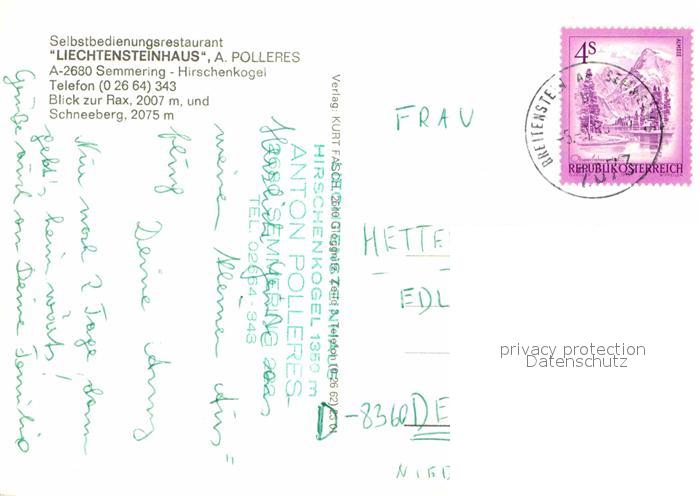 Selbstbedienungsrestaurant
"LIECHTENSTEINHAUS", A. POLLERES
A-2680 Semmering - Hirschenkogel
Telefon (0 26 64) 343
Blick zur Rax, 2007 m, und
Schneeberg, 2075 m
Verlag: KURT FASCHING, 2640 Gloggnitz, Zeile 3, Telefon (026 62)
HIRSCHENKOGEL 1350 m
ANTON POLLERES
2680 SEMMERING
TEL. 02664-343
Herzliche Grüße aus
meinem kleinen
Deine
Nur noch 2 Tage, dann
geht's heimwärts!
Grüße auch an Deine Familie
4S
ALMSEE
REPUBLIK ÖSTERREICH
BREITENSTEIN AM SEMMERING
7673
FRAU
HETTE
EDL
D-8360 DE
NIED
privacy protection
Datenschutz